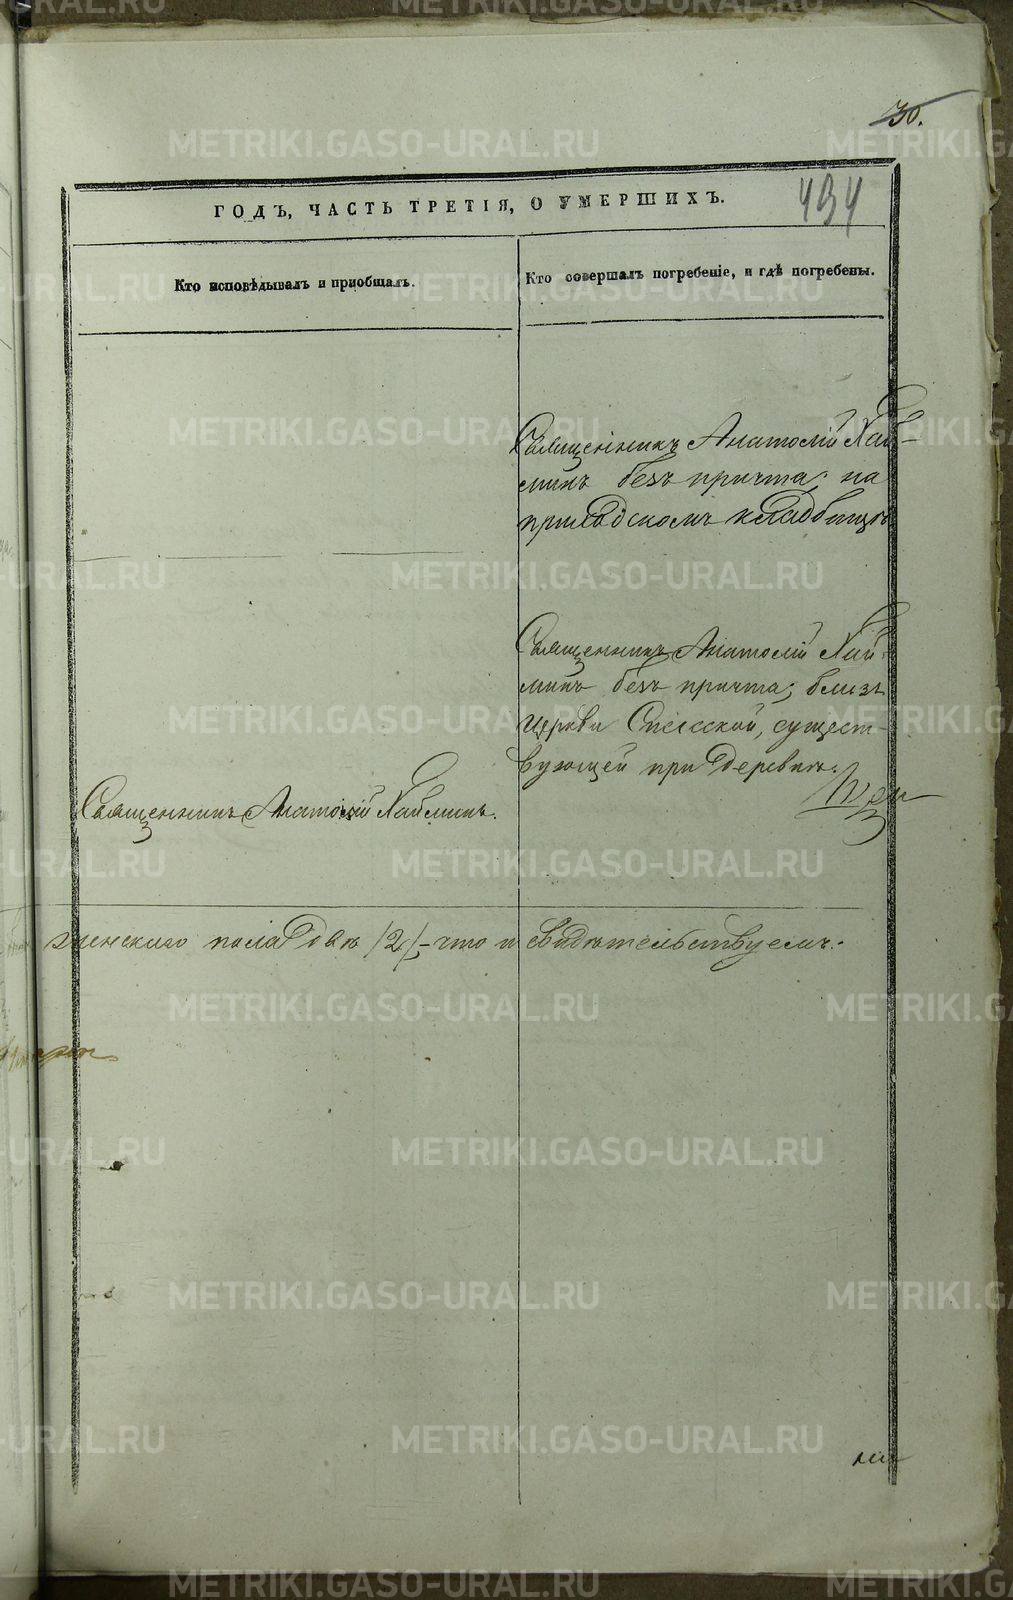 30.
434
ГОДЪ, ЧАСТЬ ТРЕТІЯ, О УМЕРШИХЪ.
Кто исповѣдывалъ и приобщалъ.
Кто совершалъ погребеніе, и гдѣ погребены.
Священникъ Анатолій Хай-
минъ безъ причта; на
приходскомъ кладбищѣ
Священникъ Анатолій Хай-
минъ безъ причта; близъ
церкви Спасской, сущест-
вующей при деревнѣ.
Священникъ Анатолій Хайминъ.
женскаго пола двѣ /2/ - что и свидѣтельствуемъ.
METRIKI.GASO-URAL.RU